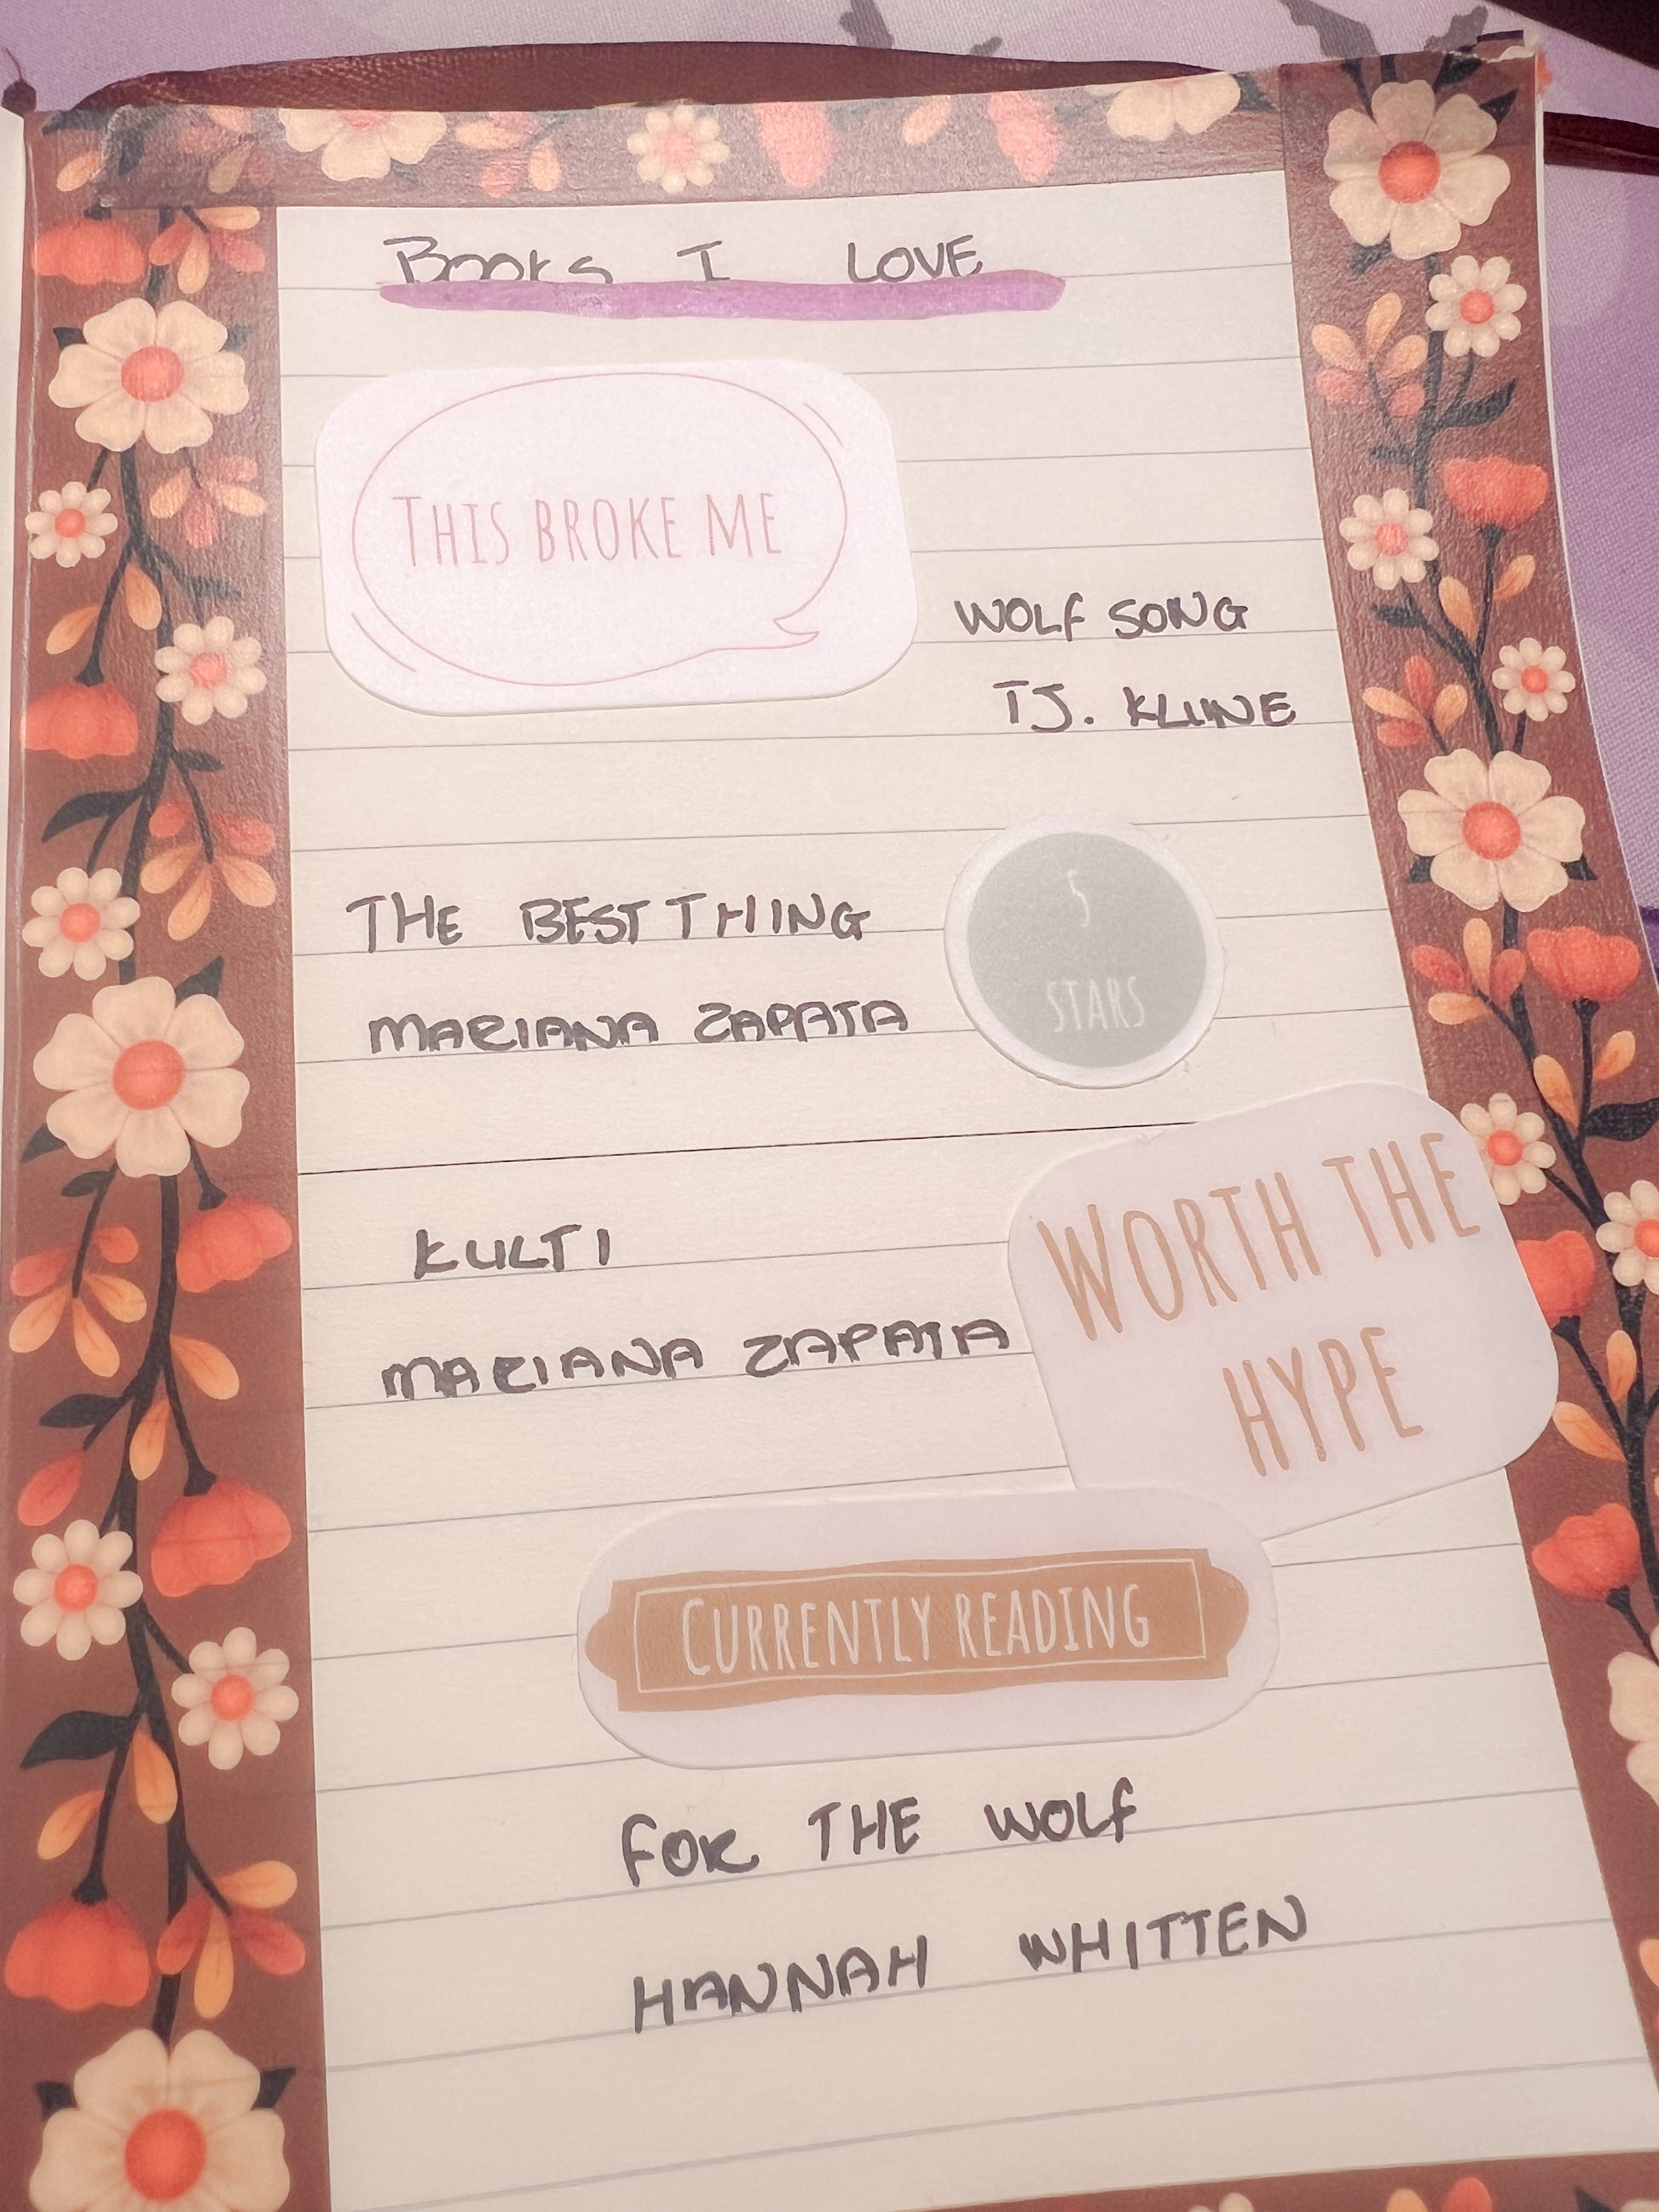 Books I LOVE
THIS BROKE ME
WOLF SONG
TJ. KLUNE
THE BEST THING
MARIANA ZAPATA
5
STARS
KULTI
MARIANA ZAPATA
WORTH THE
HYPE
CURRENTLY READING
FOR THE WOLF
HANNAH WHITTEN